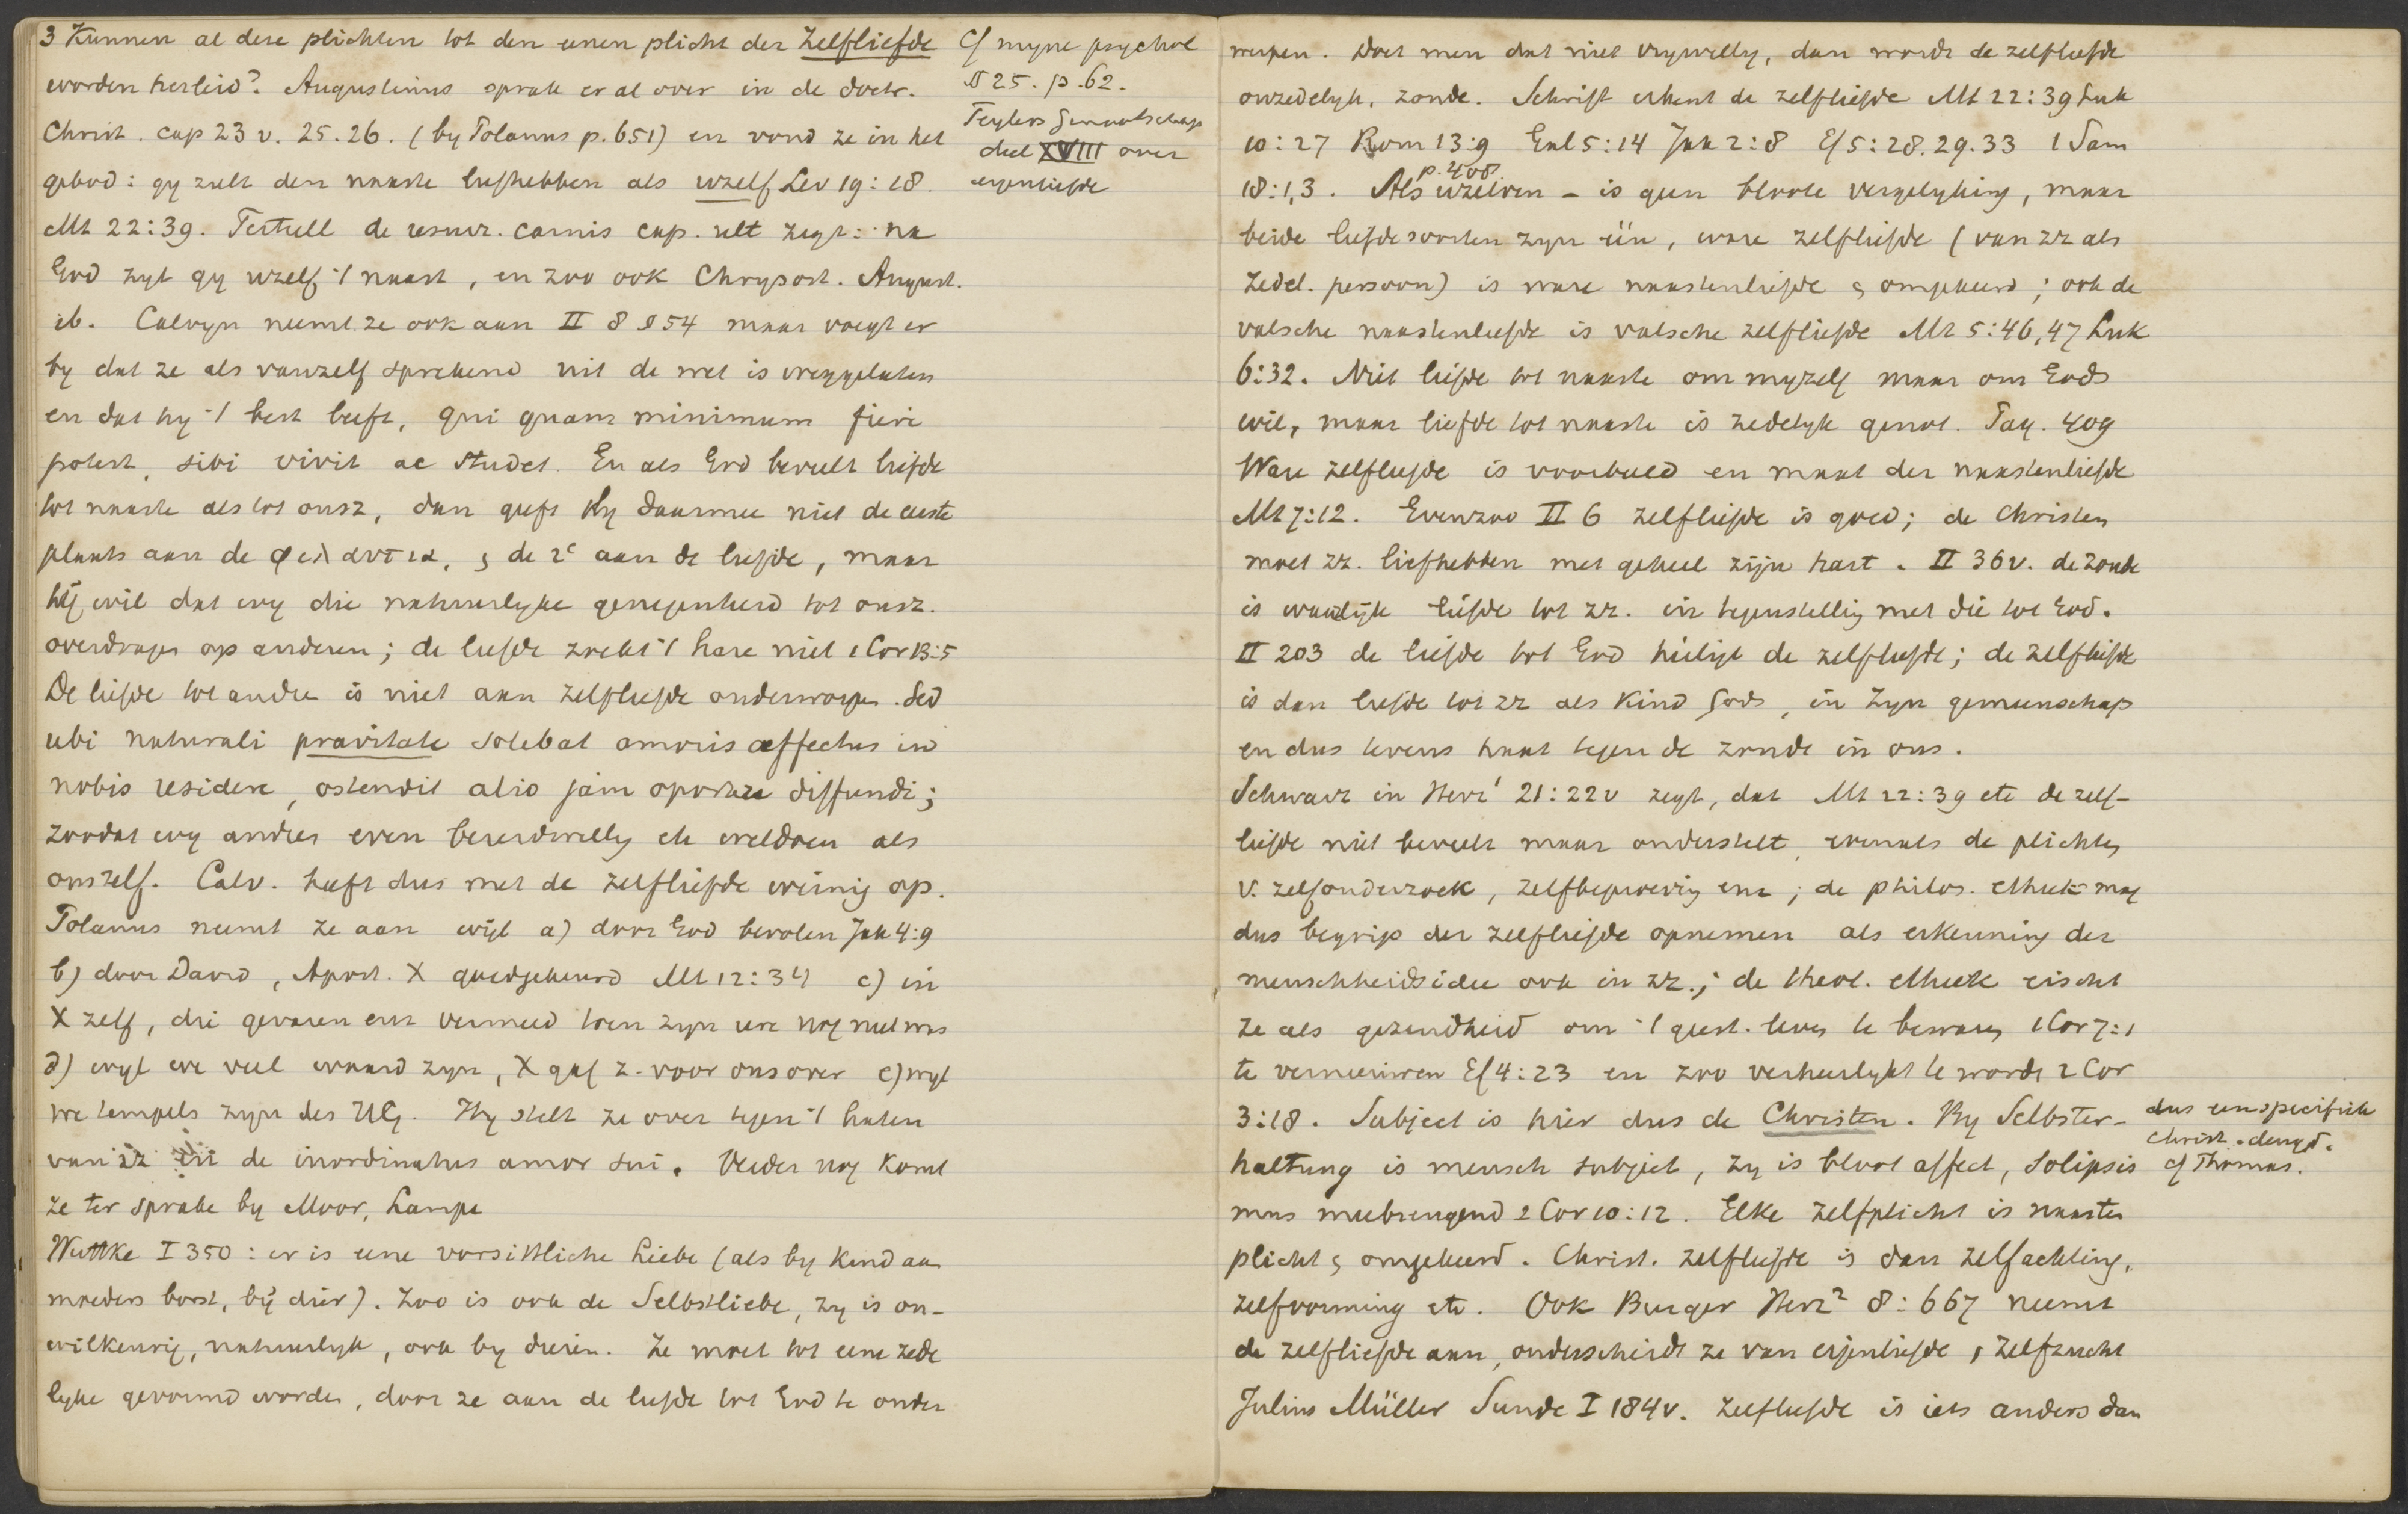 3 Kunnen al deze plichten tot den eenen plicht der zelfliefde
worden herleid? Augustinus sprak er al over in de doctr.
Christ. cap 23 v. 25. 26. (by Polanus p. 651) en vond ze in het
gebod: gy zult den naaste liefhebben als uzelf Lev 19:18.
Mt 22:39. Tertull de resurr. carnis cap. ult zegt: na
God zyt gy uzelf 't naast, en zoo ook Chrysost. August.
ib. Calvyn neemt ze ook aan II 8 § 54 maar voegt er
by dat ze als vanzelf sprekend uit de wet is weggelaten
en dat hy 't best leeft, qui quam minimum fieri
potest, sibi vivit ac studet. En als God beveelt liefde
tot naaste als tot onsz, dan geeft Hy daarmee niet de eerste
plaats aan de φιλαυτια, & de 2e aan de liefde, maar
hij wil dat wy die natuurlyke genegenheid tot onsz.
overdragen op anderen; de liefde zoekt 't hare niet 1 Cor 13:5
De liefde tot andre is niet aan zelfliefde onderworpen. Sed
ubi naturali pravitate solebat amoris affectus in
nobis residere, ostendit alio jam oportere diffundi;
zoodat wy andres even bereidwillig etc weldoen als
onszelf. Calv. heeft dus met de zelfliefde weinig op.
Polanus neemt ze aan wijl a) door God bevolen Jak 4:9
b) door David, Apost. X goedgekeurd Mt 12:34 c) in
X zelf, die gevaren enz vermeed toen zyn ure nog niet was
d) wyl we veel waard zyn, X gaf z. voor ons over e) wyl
we tempels zyn des HG. Hy stelt ze over tegen 't haten
van zz en de inordinatus amor sui. Verder nog komt
ze ter sprake by Moor, Lampe
Wuttke I 350: er is eene vorsittliche Liebe (als by kind aan
moeders borst, bij dier). Zoo is ook de Selbstliebe, zy is on-
willkeurig, natuurlyk, ook by dieren. Ze moet tot eene zede
lyke gevormd worden, door ze aan de liefde tot God te onder
Cf myne psychol
§ 25. p. 62.
Teylers Genootschap
deel XVIII over
eigenliefde
werpen. Doet men dat niet vrywillig, dan wordt de zelfliefde
onzedelyk, zonde. Schrift erkent de zelfliefde Mt 22:39 Luk
10:27 Rom 13:9 Gal 5:14 Jak 2:8 Ef 5:28.29.33 1 Sam
p. 408.
18:1,3. Als uzelven - is geen bloote vergelyking, maar
beide liefdesoorten zyn één, ware zelfliefde (van zz als
zedel. persoon) is ware naastenliefde & omgekeerd; ook de
valsche naastenliefde is valsche zelfliefde Mt 5:46,47 Luk
6:32. Niet liefde tot naaste om myzelf maar om Gods
wil, maar liefde tot naaste is zedelyk genot. Pag. 409
Ware zelfliefde is voorbeeld en maat der naastenliefde
Mt 7:12. Evenzoo II 6 zelfliefde is goed; de Christen
moet zz. liefhebben met geheel zijn hart. II 36v. de zonde
is waarlijk liefde tot zz. in tegenstelling met die tot God.
II 203 de liefde tot God heiligt de zelfliefde; de zelfliefde
is dan liefde tot zz als kind Gods, in Zyn gemeenschap
en dus tevens haat tegen de zonde in ons.
Schwarz in Herz¹ 21:22v zegt, dat Mt 22:39 etc de zelf-
liefde niet beveelt maar onderstelt, evenals de plichten
v. zelfonderzoek, zelfbeproeving enz; de philos. ethiek mag
dus begrip der zelfliefde opnemen als erkenning der
menschheidsidee ook in zz.; de theol. ethiek eischt
ze als gezindheid om 't geest. leven te bewaren 1 Cor 7:1
te vernieuwen Ef 4:23 en zoo verheerlykt te worden 2 Cor
3:18. Subject is hier dus de Christen. By Selbster-
haltung is mensch subject, zy is bloot affect, solipsis
mus meebrengend 2 Cor 10:12. Elke zelfplicht is naasten
plicht & omgekeerd. Christ. zelfliefde is dan zelfachting,
zelfvorming etc. Ook Burger Herz² 8:667 neemt
de zelfliefde aan, onderscheidt ze van eigenliefde, zelfzucht
Julius Müller Sunde I 184v. Zelfliefde is iets anders dan
dus een specifiek
Christ. deugd.
cf Thomas.